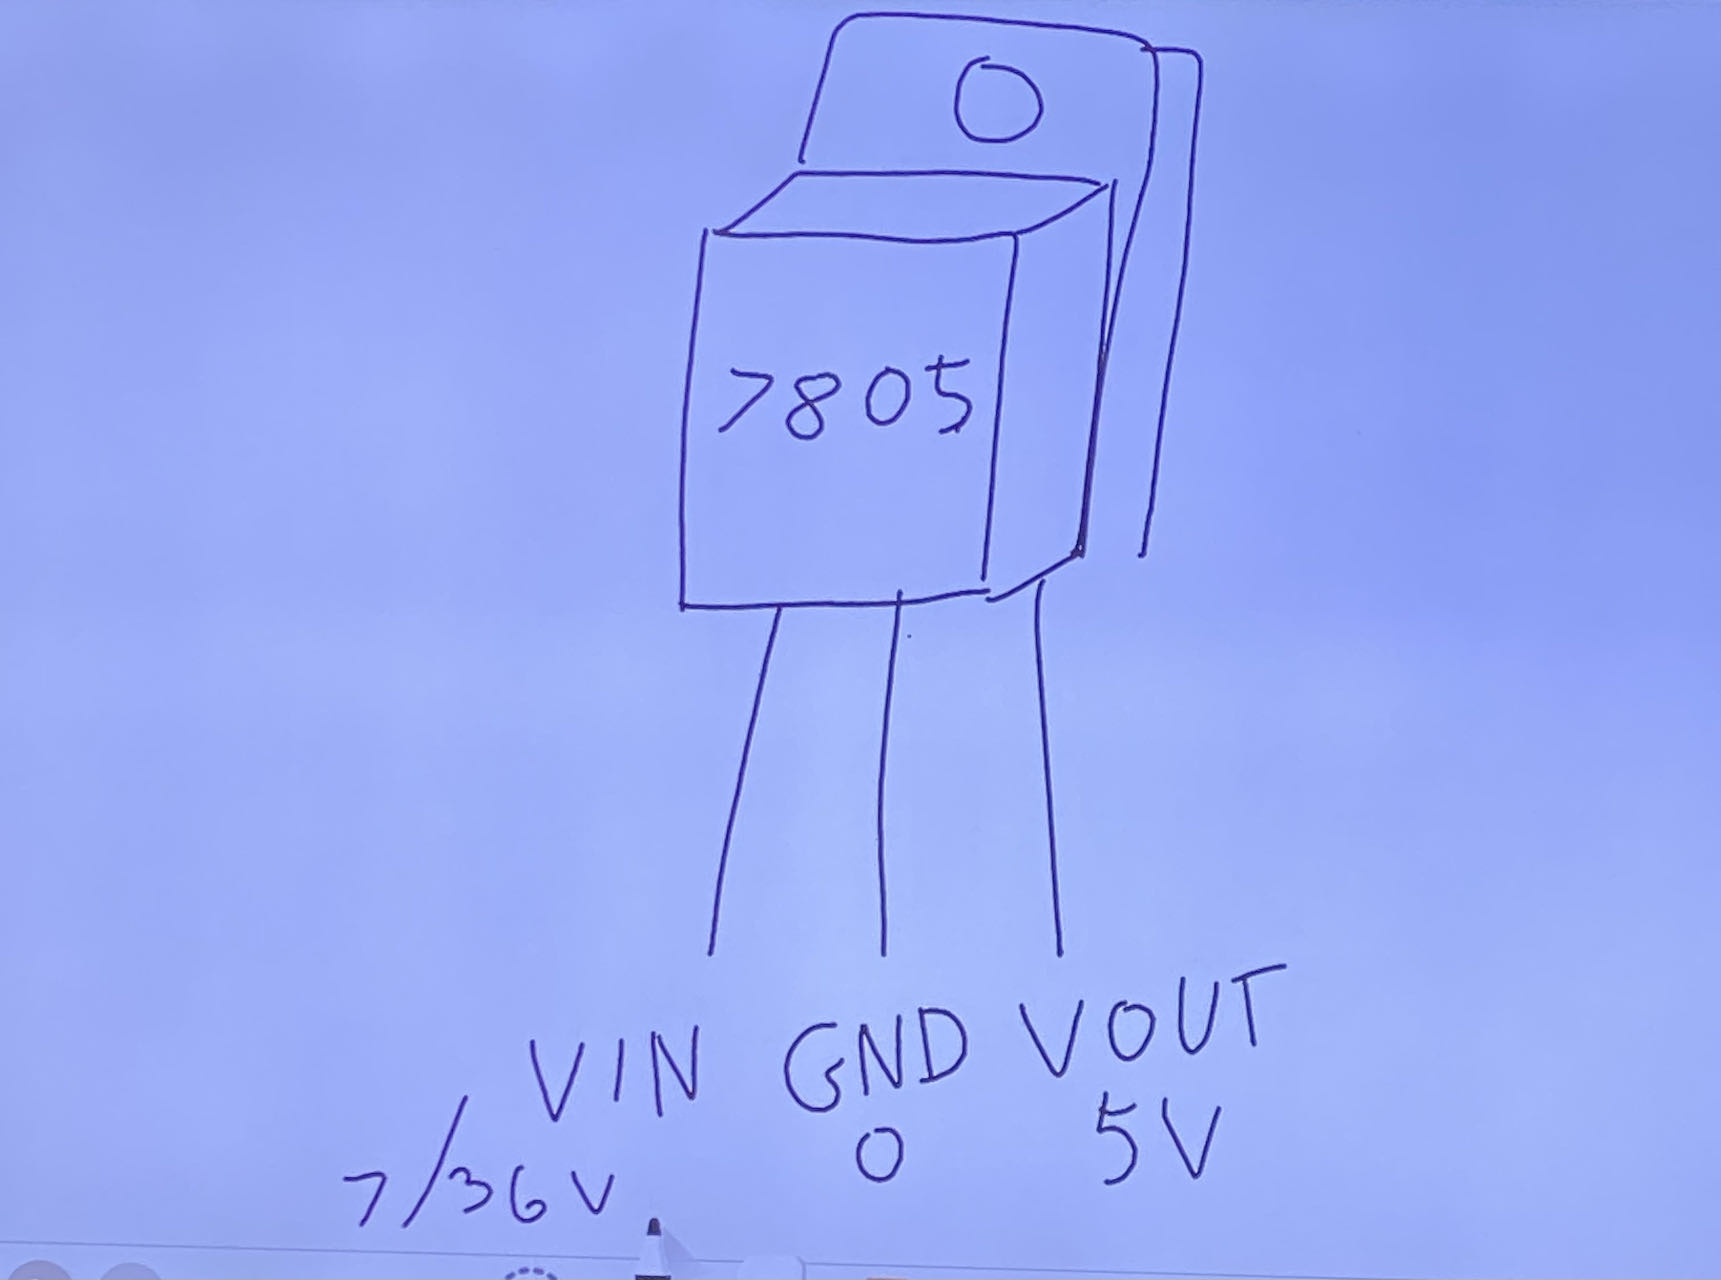 7805
VIN GND VOUT
7/36V 0 5V